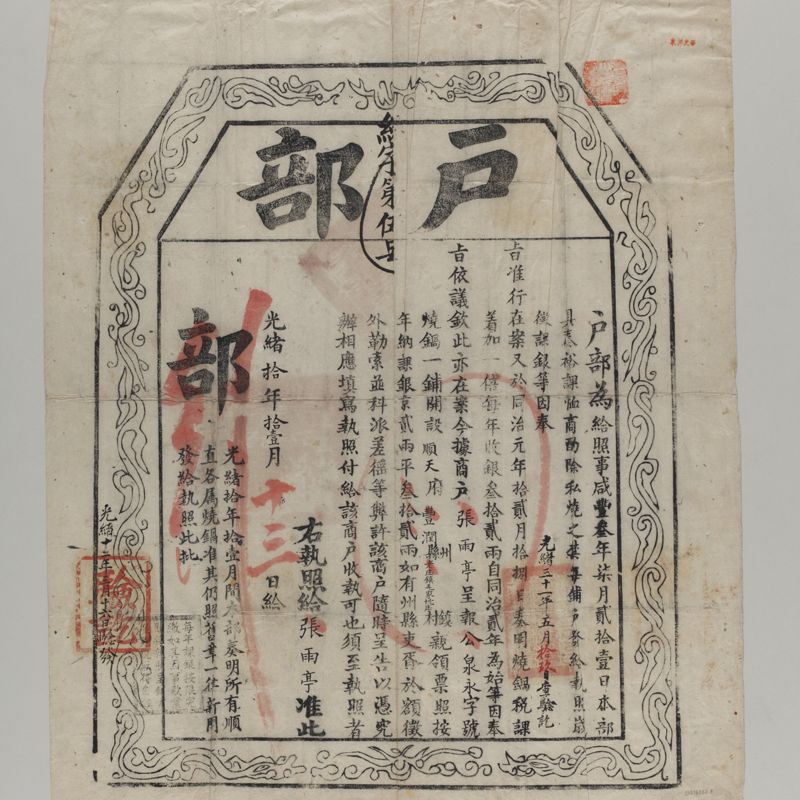 戶部
戶部為給照事咸豐叁年柒月貳拾壹日本部
具奏裕課恤商酌除私燒之弊每鋪戶發給執照歲
徵課銀等因奉
旨准行在案又於同治元年拾貳月拾捌日奏明燒鍋稅課
著加一倍每年收銀叁拾貳兩自同治貳年為始等因奉
旨依議欽此亦在案今據商戶張雨亭呈報公泉永字號
燒鍋一鋪開設順天府豐潤縣州 鎮村親領票照按
年納課銀京貳兩平叁拾貳兩如有州縣吏胥於額徵
外勒索並科派差徭等弊許該商戶隨時呈告以憑究
辦相應填寫執照付給該商戶收執可也須至執照者
右執照給張雨亭准此
光緒拾年拾壹月十三日給
部
光緒拾年拾壹月間本部奏明所有順
直各屬燒鍋准其仍照舊章一律新開
發給執照此批
光緒三十一年五月拾玖日查驗訖
光緒十二年二月十六日驗發